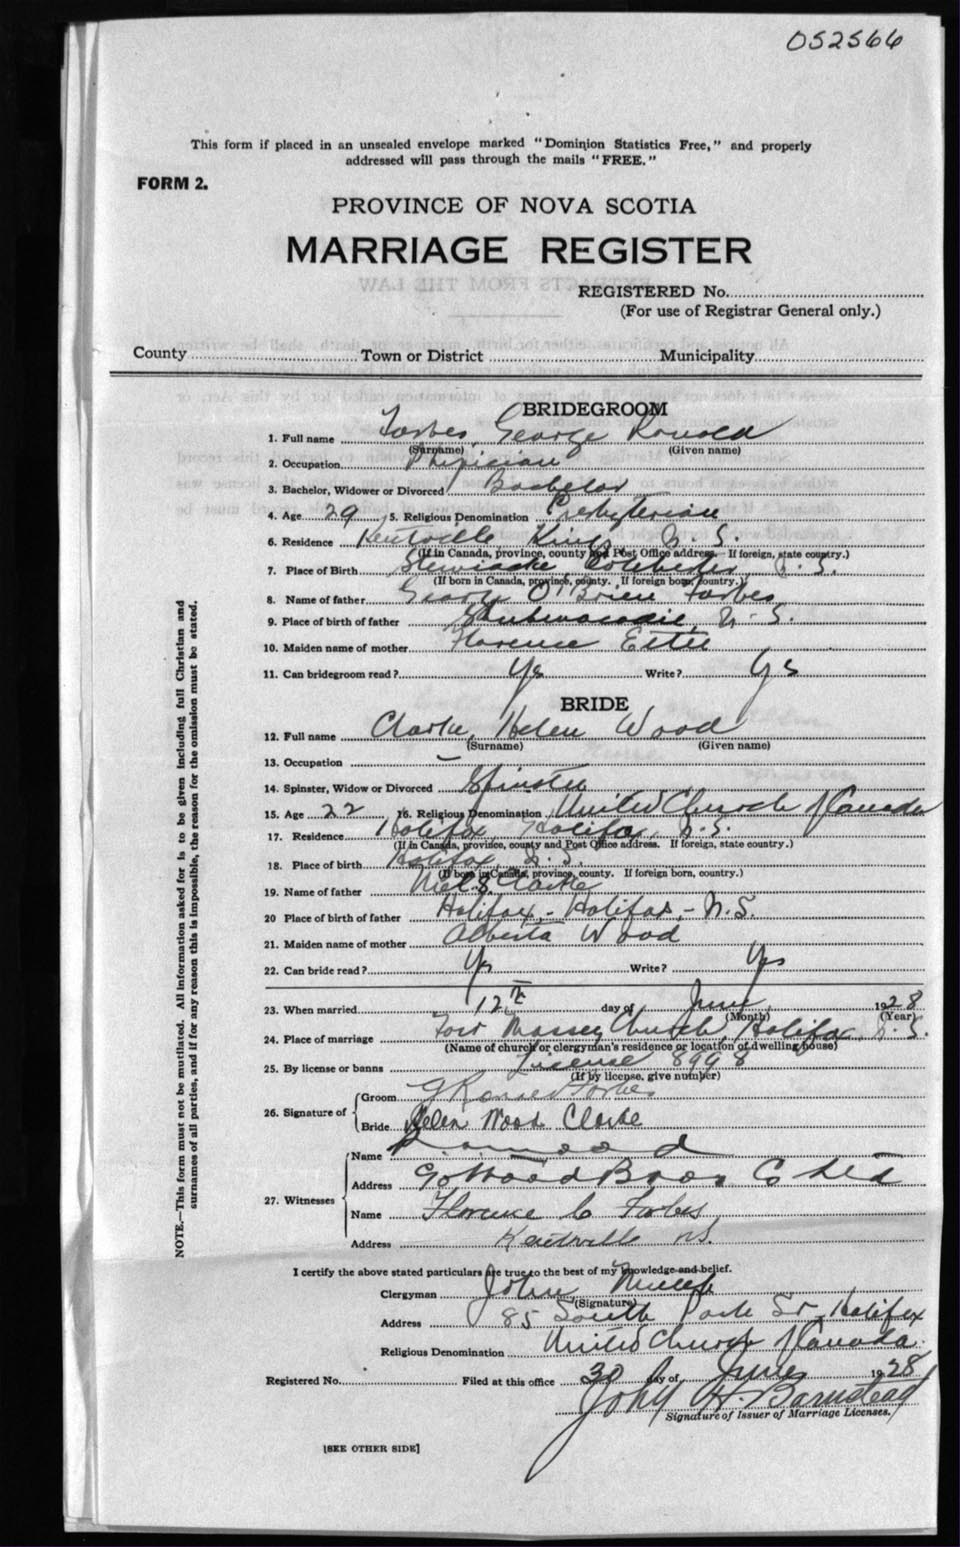 052566
This form if placed in an unsealed envelope marked "Dominion Statistics Free," and properly
addressed will pass through the mails "FREE."
FORM 2.
PROVINCE OF NOVA SCOTIA
MARRIAGE REGISTER
REGISTERED No.
(For use of Registrar General only.)
County Town or District Municipality
BRIDEGROOM
1. Full name Forbes, George Ronald
(Surname) (Given name)
2. Occupation Physician
3. Bachelor, Widower or Divorced Bachelor
4. Age 29 5. Religious Denomination Presbyterian
6. Residence Kentville Kings N.S.
(If in Canada, province, county and Post Office address. If foreign, state country.)
7. Place of Birth Stewiacke Colchester N.S.
(If born in Canada, province, county. If foreign born, country.)
8. Name of father George O'Brien Forbes
9. Place of birth of father Shubenacadie, N.S.
10. Maiden name of mother Florence
11. Can bridegroom read? Yes Write? Yes
BRIDE
12. Full name Clarke, Helen Wood
(Surname) (Given name)
13. Occupation –
14. Spinster, Widow or Divorced Spinster
15. Age 22 16. Religious Denomination United Church of Canada
17. Residence Halifax, Halifax, N.S.
(If in Canada, province, county and Post Office address. If foreign, state country.)
18. Place of birth Halifax, N.S.
(If born in Canada, province, county. If foreign born, country.)
19. Name of father Clarke
20 Place of birth of father Halifax, - Halifax, - N.S.
21. Maiden name of mother Alberta Wood
22. Can bride read? Yes Write? Yes
23. When married 12th day of June 1928
(Month) (Year)
24. Place of marriage Fort Massey Church, Halifax, N.S.
(Name of church or clergyman's residence or location of dwelling house)
25. By license or banns License 8998
(If by license, give number)
26. Signature of Groom G Ronald Forbes
Bride Helen Wood Clarke
27. Witnesses Name
Address Wood Bros Co Ltd
Name Florence C Forbes
Address Kentville N.S.
I certify the above stated particulars are true to the best of my knowledge and belief.
Clergyman John
(Signature)
Address 85 South Park St, Halifax
Religious Denomination United Church of Canada.
Registered No. Filed at this office 30 day of June 1928
John H. Barnstead
Signature of Issuer of Marriage Licenses.
[SEE OTHER SIDE]
NOTE.—This form must not be mutilated. All information asked for is to be given including full Christian and
surnames of all parties, and if for any reason this is impossible, the reason for the omission must be stated.